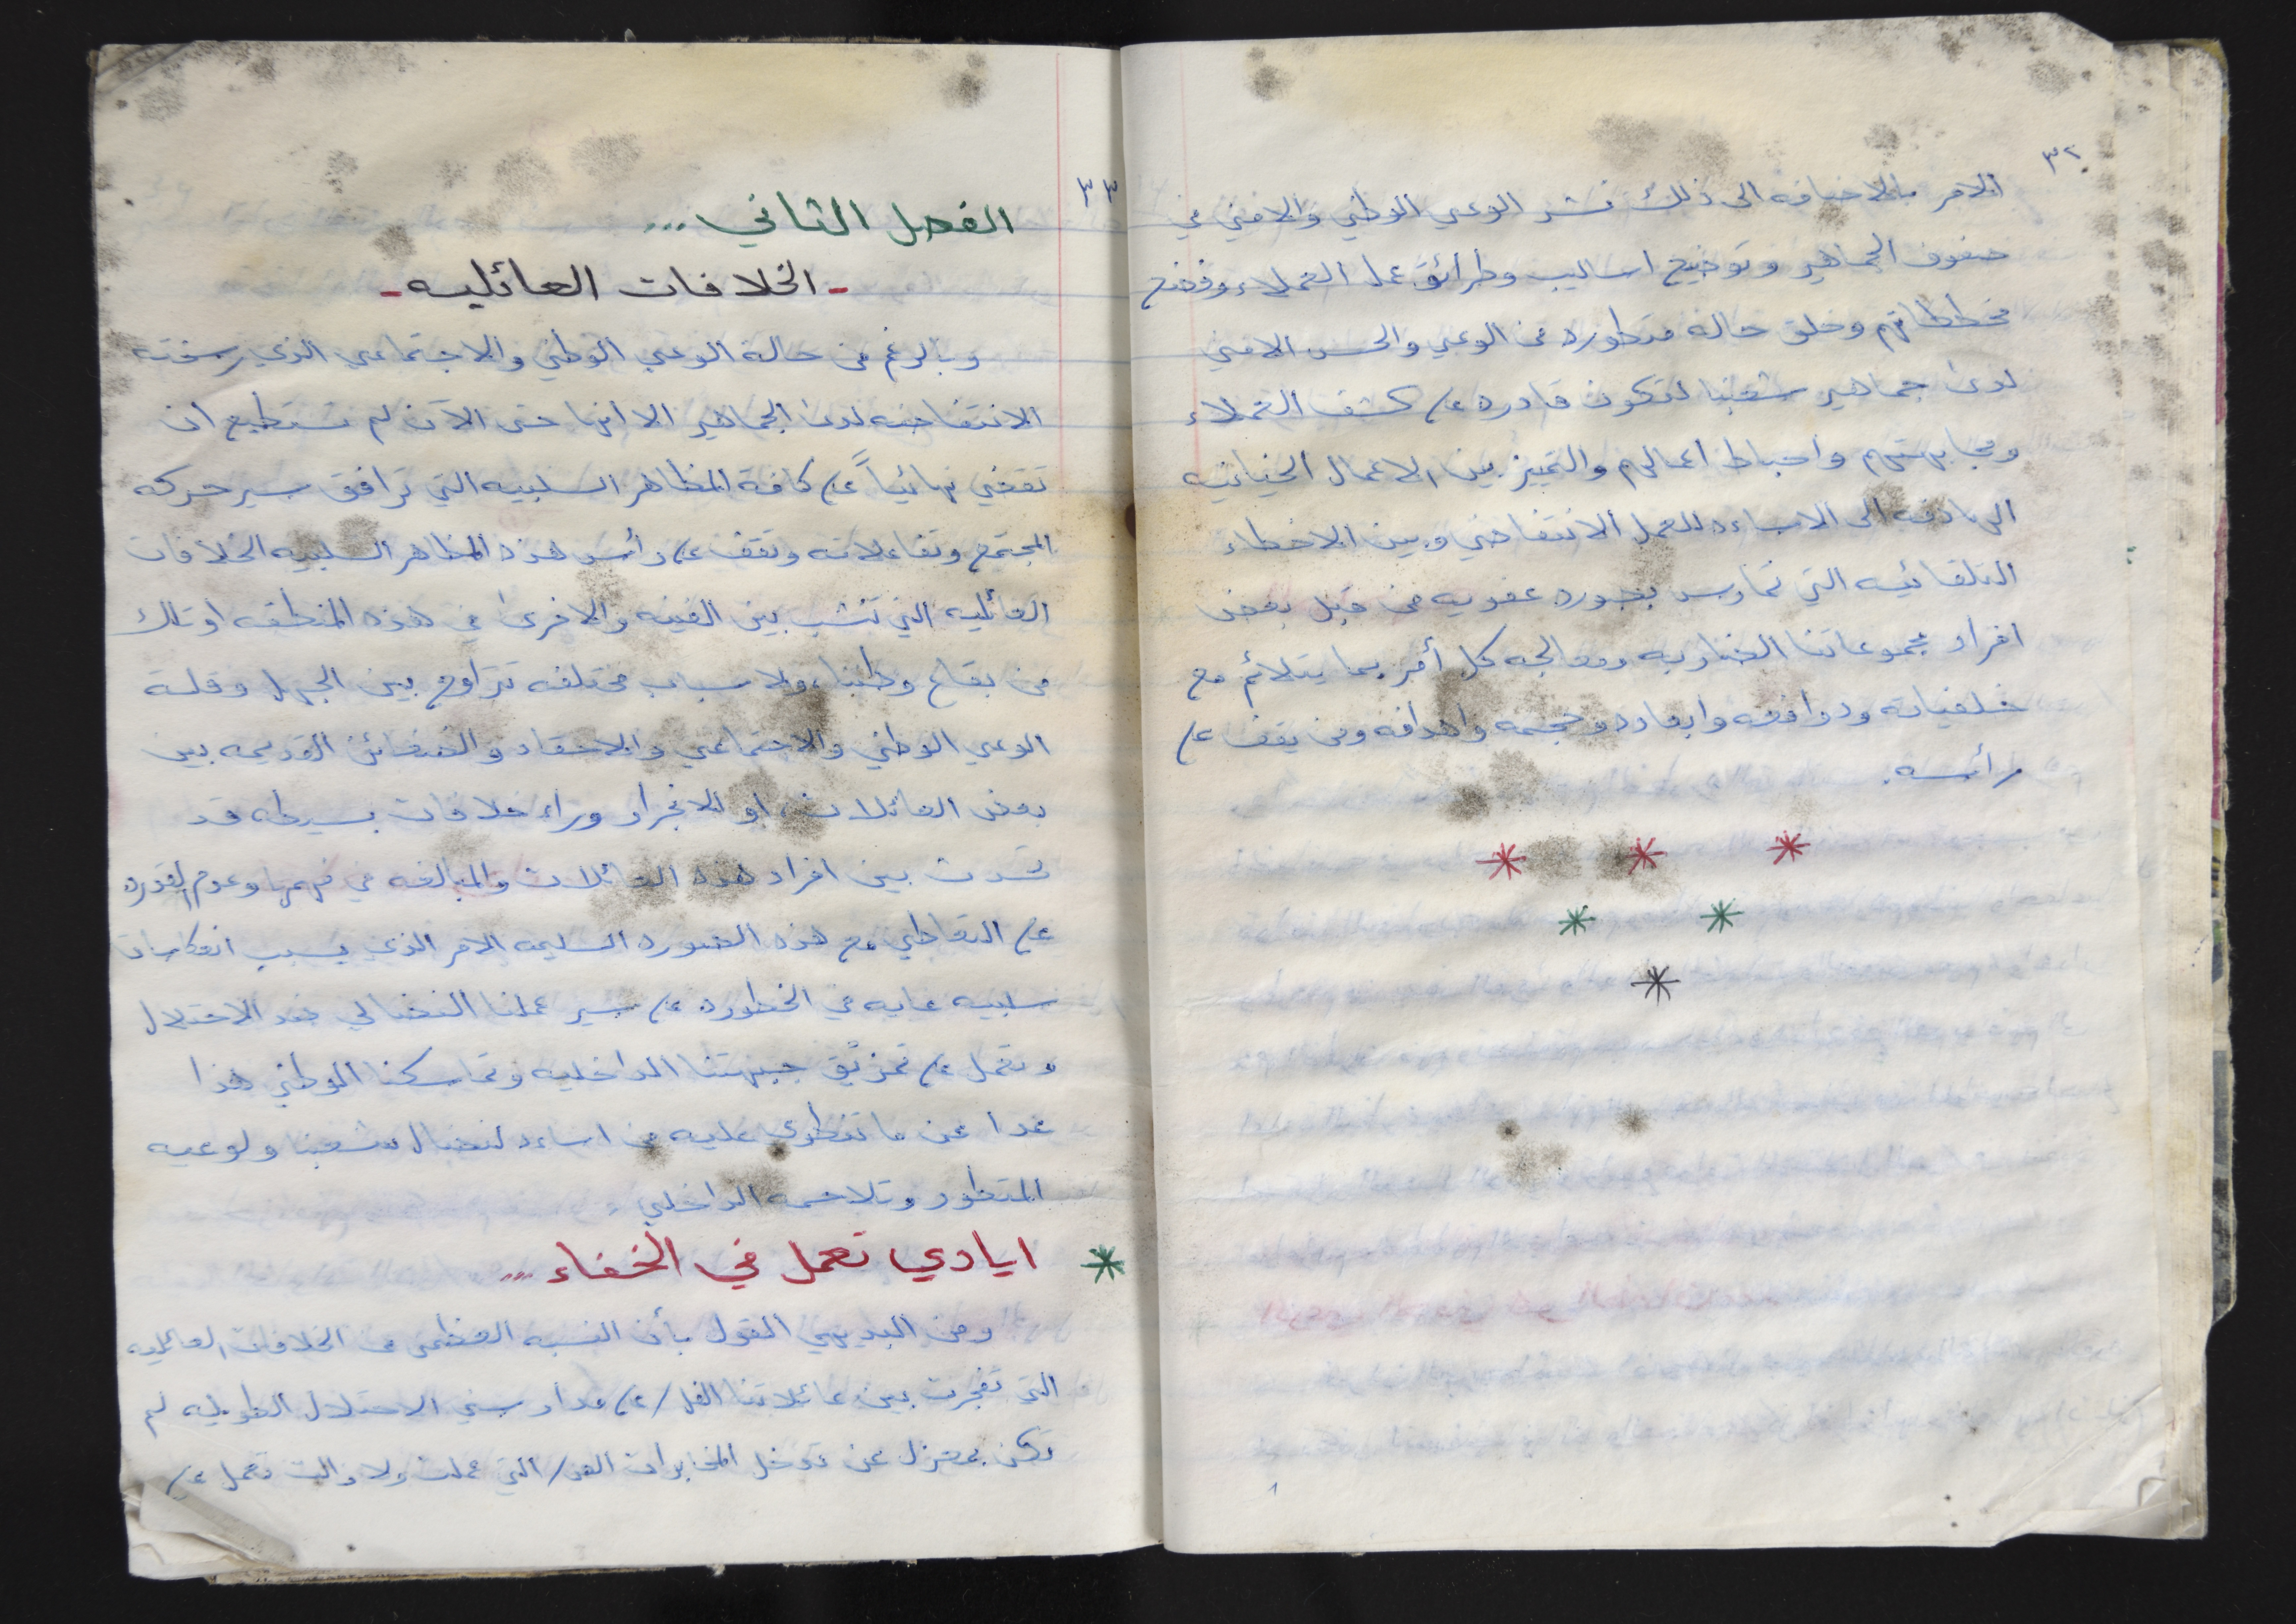 ٣٢
الامر بالاضافه الى ذلك نشر الوعي الوطني والامني في
صفوف الجماهير وتوضيح اساليب وطرائق عمل العملاء وفضح
مخططاتهم وخلق حاله متطوره من الوعي والحس الامني
لدى جماهير شعبنا لتكون قادره على كشف العملاء
ومجابهتهم واحباط اعمالهم والتمييز بين الاعمال الخيانيه
الهادفه الى الاساءه للعمل الانتفاضي وبين الاخطاء
التلقائيه التي تمارس بصوره عفويه من قبل بعض
افراد مجموعاتنا الضاربه ومعالجه كل أمر بما يتلائم مع
خلفياته ودوافعه وابعاده وحجمه واهدافه ومن يقف على
رأسه.
٣٣
الفصل الثاني ...
- الخلافات العائليه -
وبالرغم من حالة الوعي الوطني والاجتماعي الذي رسخته
الانتفاضه لدى الجماهير الا انها حتى الآن لم تستطيع ان
تقضي نهائياً على كافة المظاهر السلبيه التي ترافق سير حركه
المجتمع وتفاعلاته وتقف على رأس هذه المظاهر السلبيه الخلافات
العائليه التي تنشب بين الفينه والاخرى في هذه المنطقه او تلك
من بقاع وطننا، ولاسباب مختلفه تتراوح بين الجهل وقلة
الوعي الوطني والاجتماعي والاحقاد والضغائن القديمه بين
بعض العائلات، او الانجرار وراء خلافات بسيطه قد
تحدث بين افراد هذه العائلات والمبالغه في فهمها وعدم القدره
على التعاطي مع هذه الصوره السليمه الامر الذي يسبب انعكاسات
سلبيه غايه في الخطوره على سير عملنا النضالي ضد الاحتلال
وتعمل على تمزيق جبهتنا الداخليه وتماسكنا الوطني هذا
عدا عن ما تنطوي عليه من اساءه لنضال شعبنا ولوعيه
المتطور وتلاحمه الداخلي.
* ايادي تعمل في الخفاء ...
ومن البديهي القول بأن النسبه العظمى من الخلافات العائليه
التي تفجرت بين عائلاتنا الفل/ على مدار سني الاحتلال الطويله لم
تكن بمعزل عن تدخل المخابرات العد/ التي عملت ولا زالت تعمل على